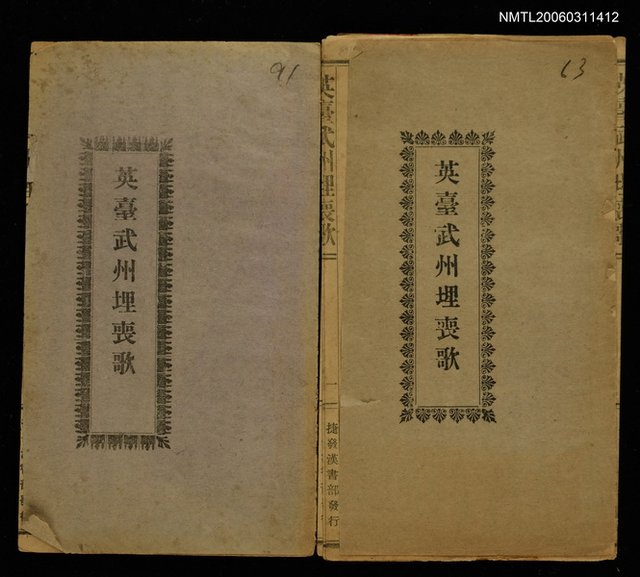 NMTL20060311412
91
英臺武州埋喪歌
英臺武州埋喪歌
二
捷發漢書部發行
63
英臺武州埋喪歌